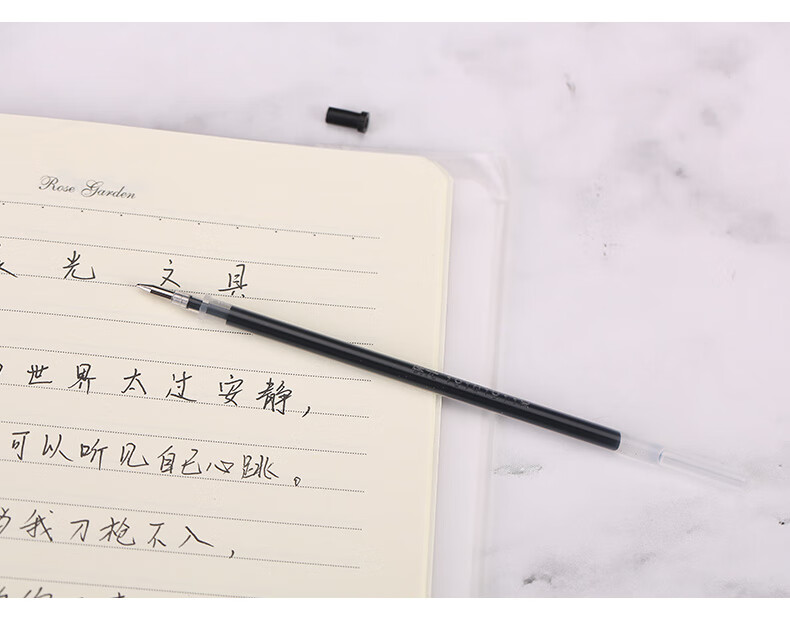 Rose Garden
光文具
世界太过安静,
可以听见自己心跳。
我刀枪不入,